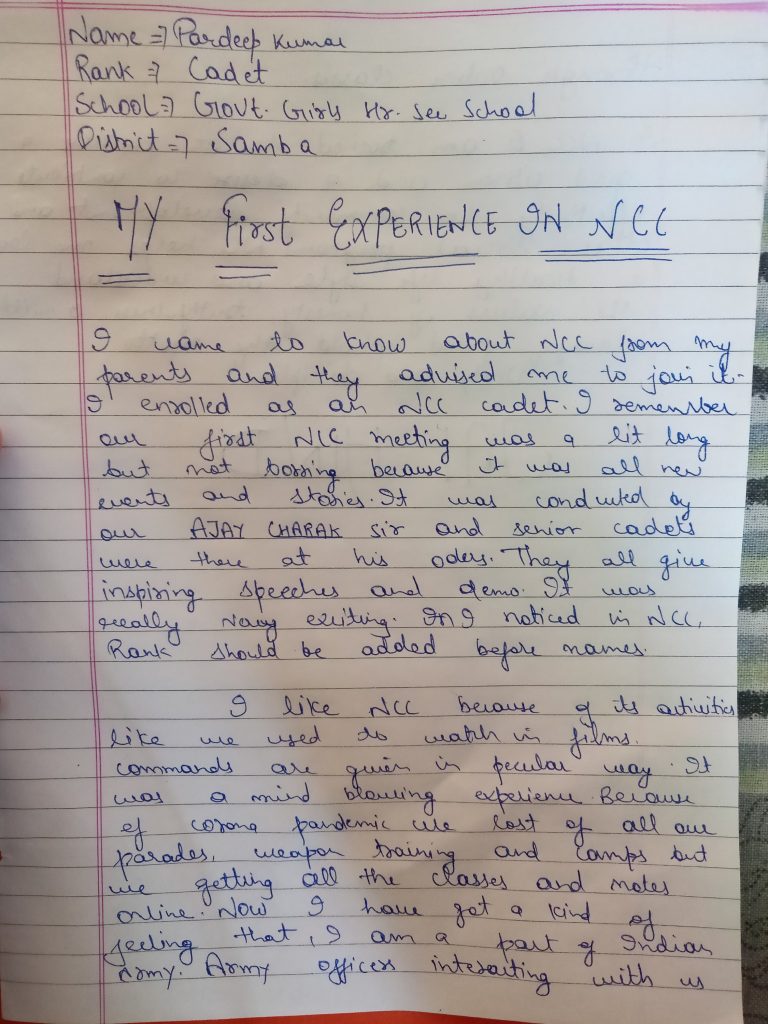 Name => Pardeep Kumar
Rank => Cadet
School => Govt. Girls Hr. Sec School
District => Samba
MY First EXPERIENCE IN NCC
I came to know about NCC from my
parents and they advised me to join it.
I enrolled as an NCC cadet. I remember
our first NCC meeting was a lit long
but not borring because it was all new
events and stories. It was conducted by
our AJAY CHARAK sir and senior cadets
were there at his oders. They all give
inspiring speeches and demo. It was
really exiting. I noticed in NCC,
Rank should be added before names.
I like NCC because of its activities
like we used to watch in films.
commands are given in pecular way. It
was a mind blowing experience. Because
of corona pandemic we lost of all our
parades, weapon training and camps but
we getting all the classes and notes
online. Now I have got a kind of
feeling that, I am a part of Indian
Army. Army officers interacting with us